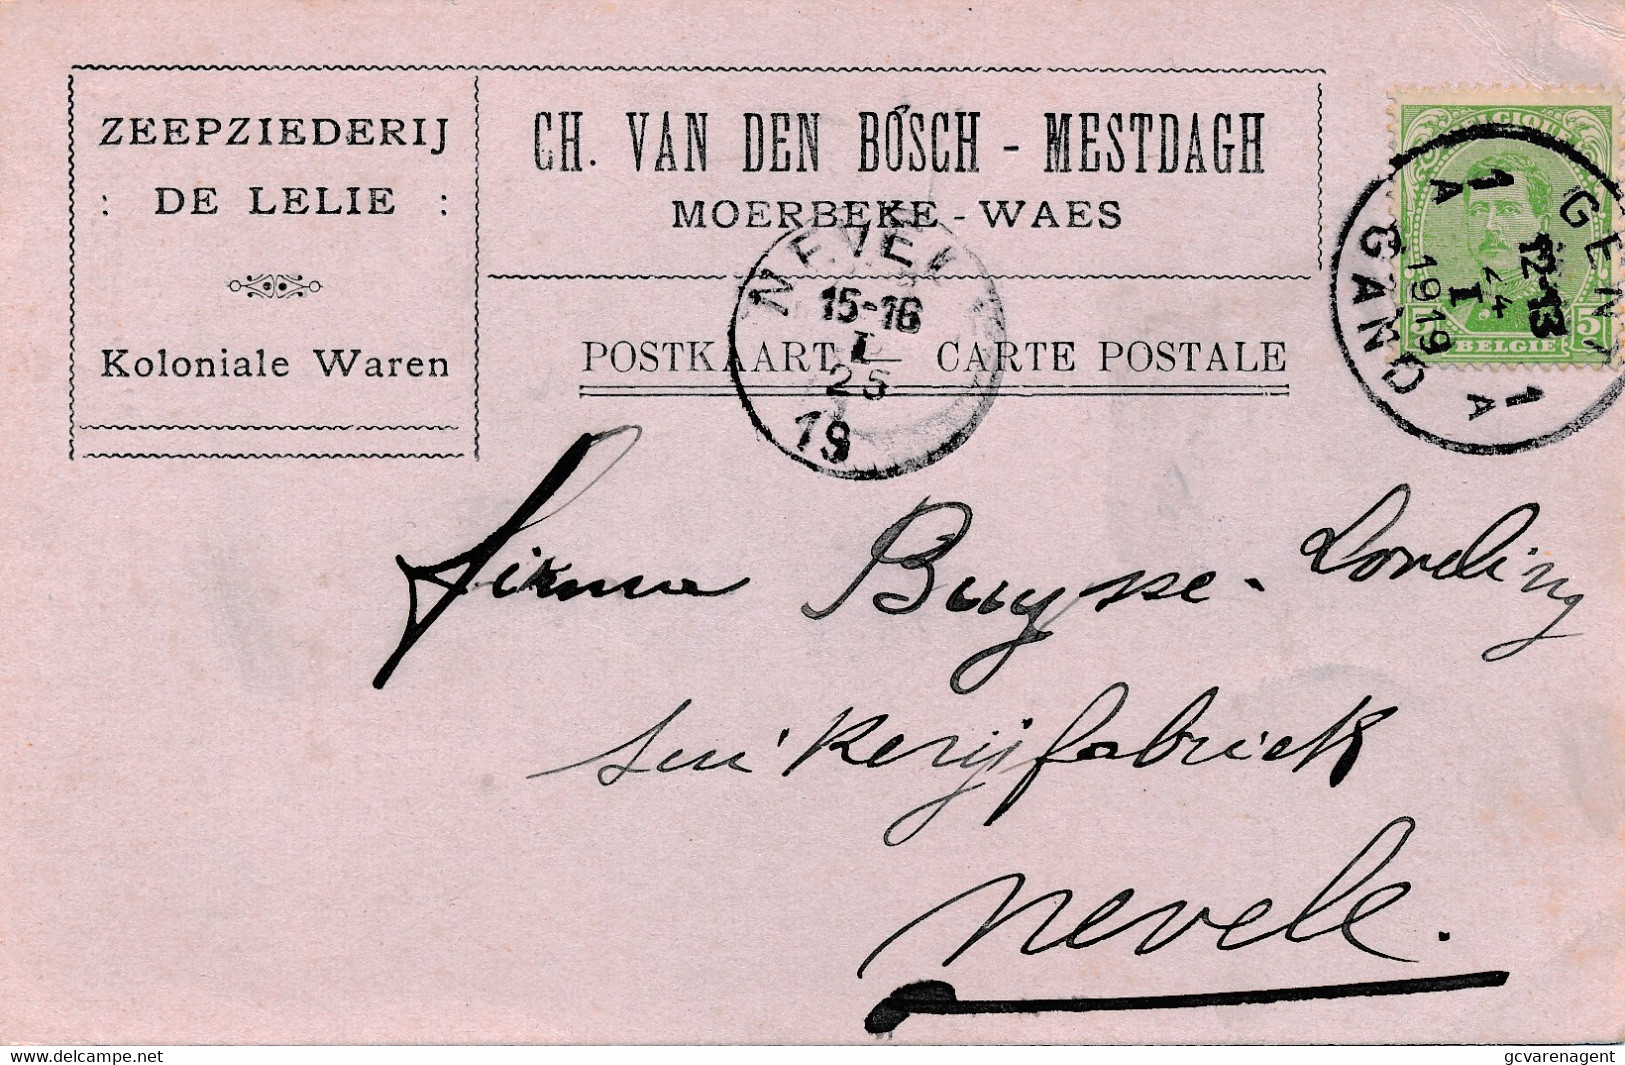 ZEEPZIEDERIJ
: DE LELIE :
Koloniale Waren
CH. VAN DEN BOSCH - MESTDAGH
MOERBEKE - WAES
POSTKAART
CARTE POSTALE
BELGIQUE
5
BELGIE
GENT
1 A
12-13
24
I
1919
1 A
GAND
NEVEL
15-16
I
25
19
firma Buysse-Loveling
suikerijfabriek
Nevele.
www.delcampe.net
gcvarenagent